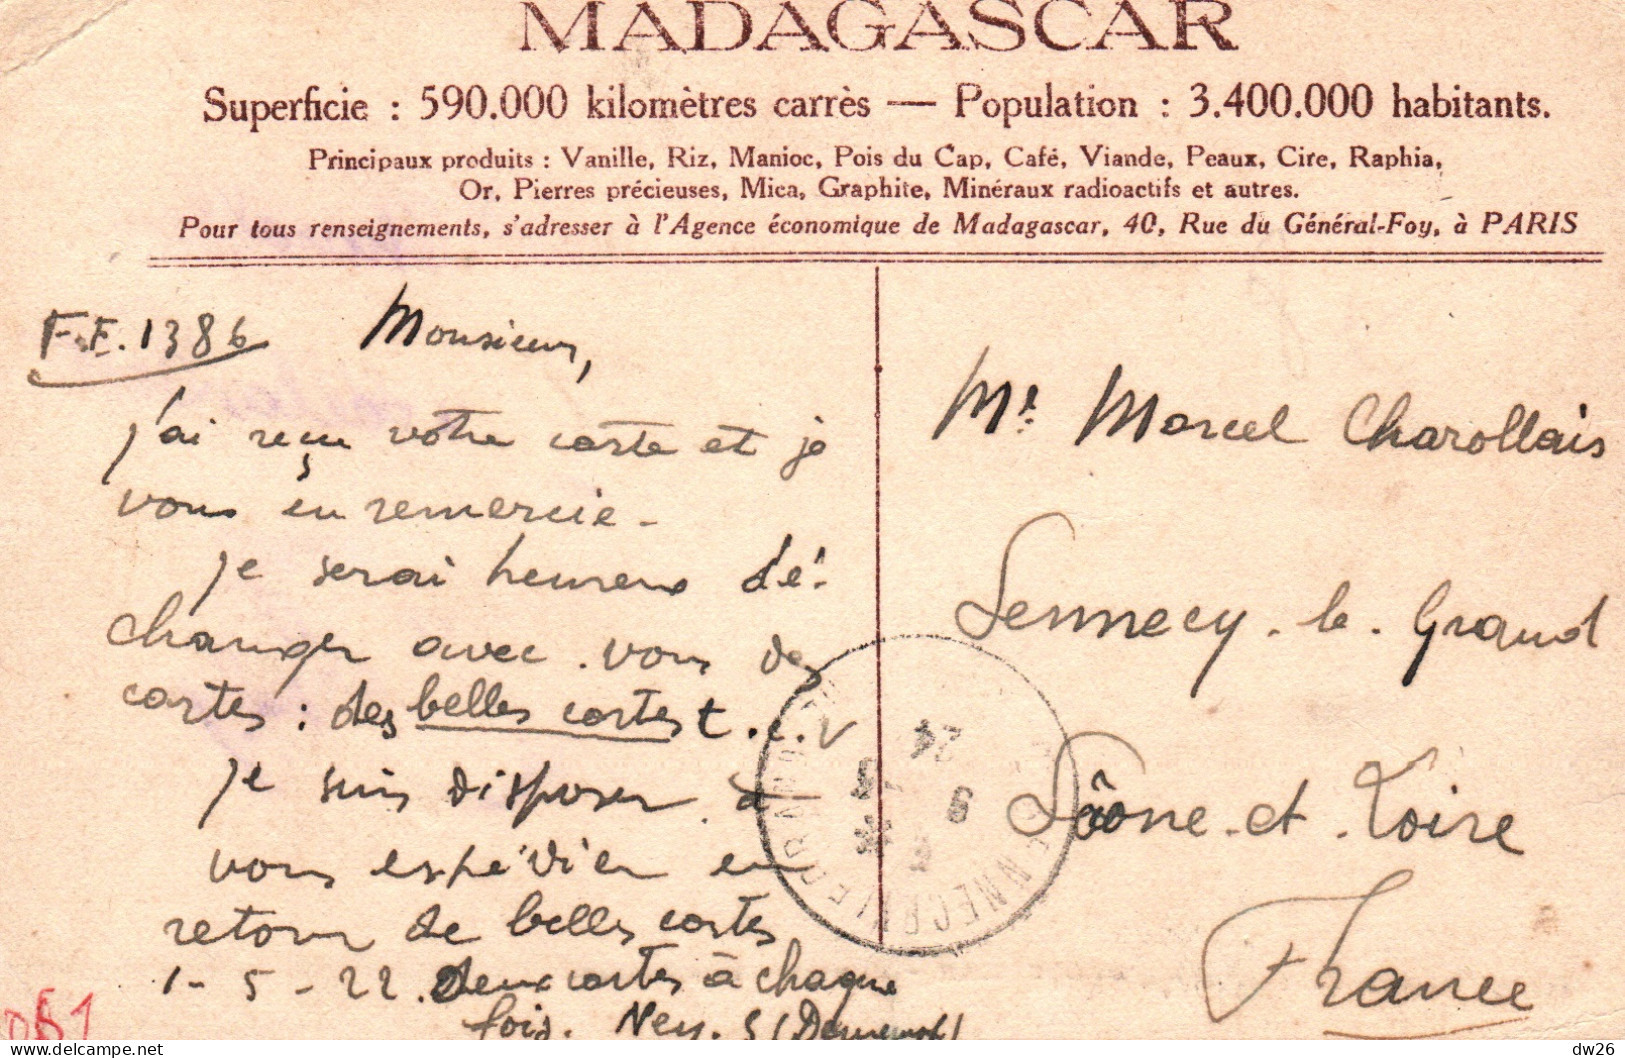 MADAGASCAR
Superficie : 590.000 kilomètres carrès — Population : 3.400.000 habitants.
Principaux produits : Vanille, Riz, Manioc, Pois du Cap, Café, Viande, Peaux, Cire, Raphia,
Or, Pierres précieuses, Mica, Graphite, Minéraux radioactifs et autres.
Pour tous renseignements, s'adresser à l'Agence économique de Madagascar, 40, Rue du Général-Foy, à PARIS
F.F. 1386 Monsieur,
j'ai reçu votre carte et je
vous en remercie -
je serai heureux d'é-
changer avec vous des
cartes : des belles cartes t.c.v
je suis disposer à
vous expé'dier en
retour de belles cartes
1-5-22. deux cartes à chaque
fois. Ney. S
Mr. Marcel Charollais
Sennecy-le-Grand
Sâone-et-Loire
France
SENNECEY
24
9 -5
dw26